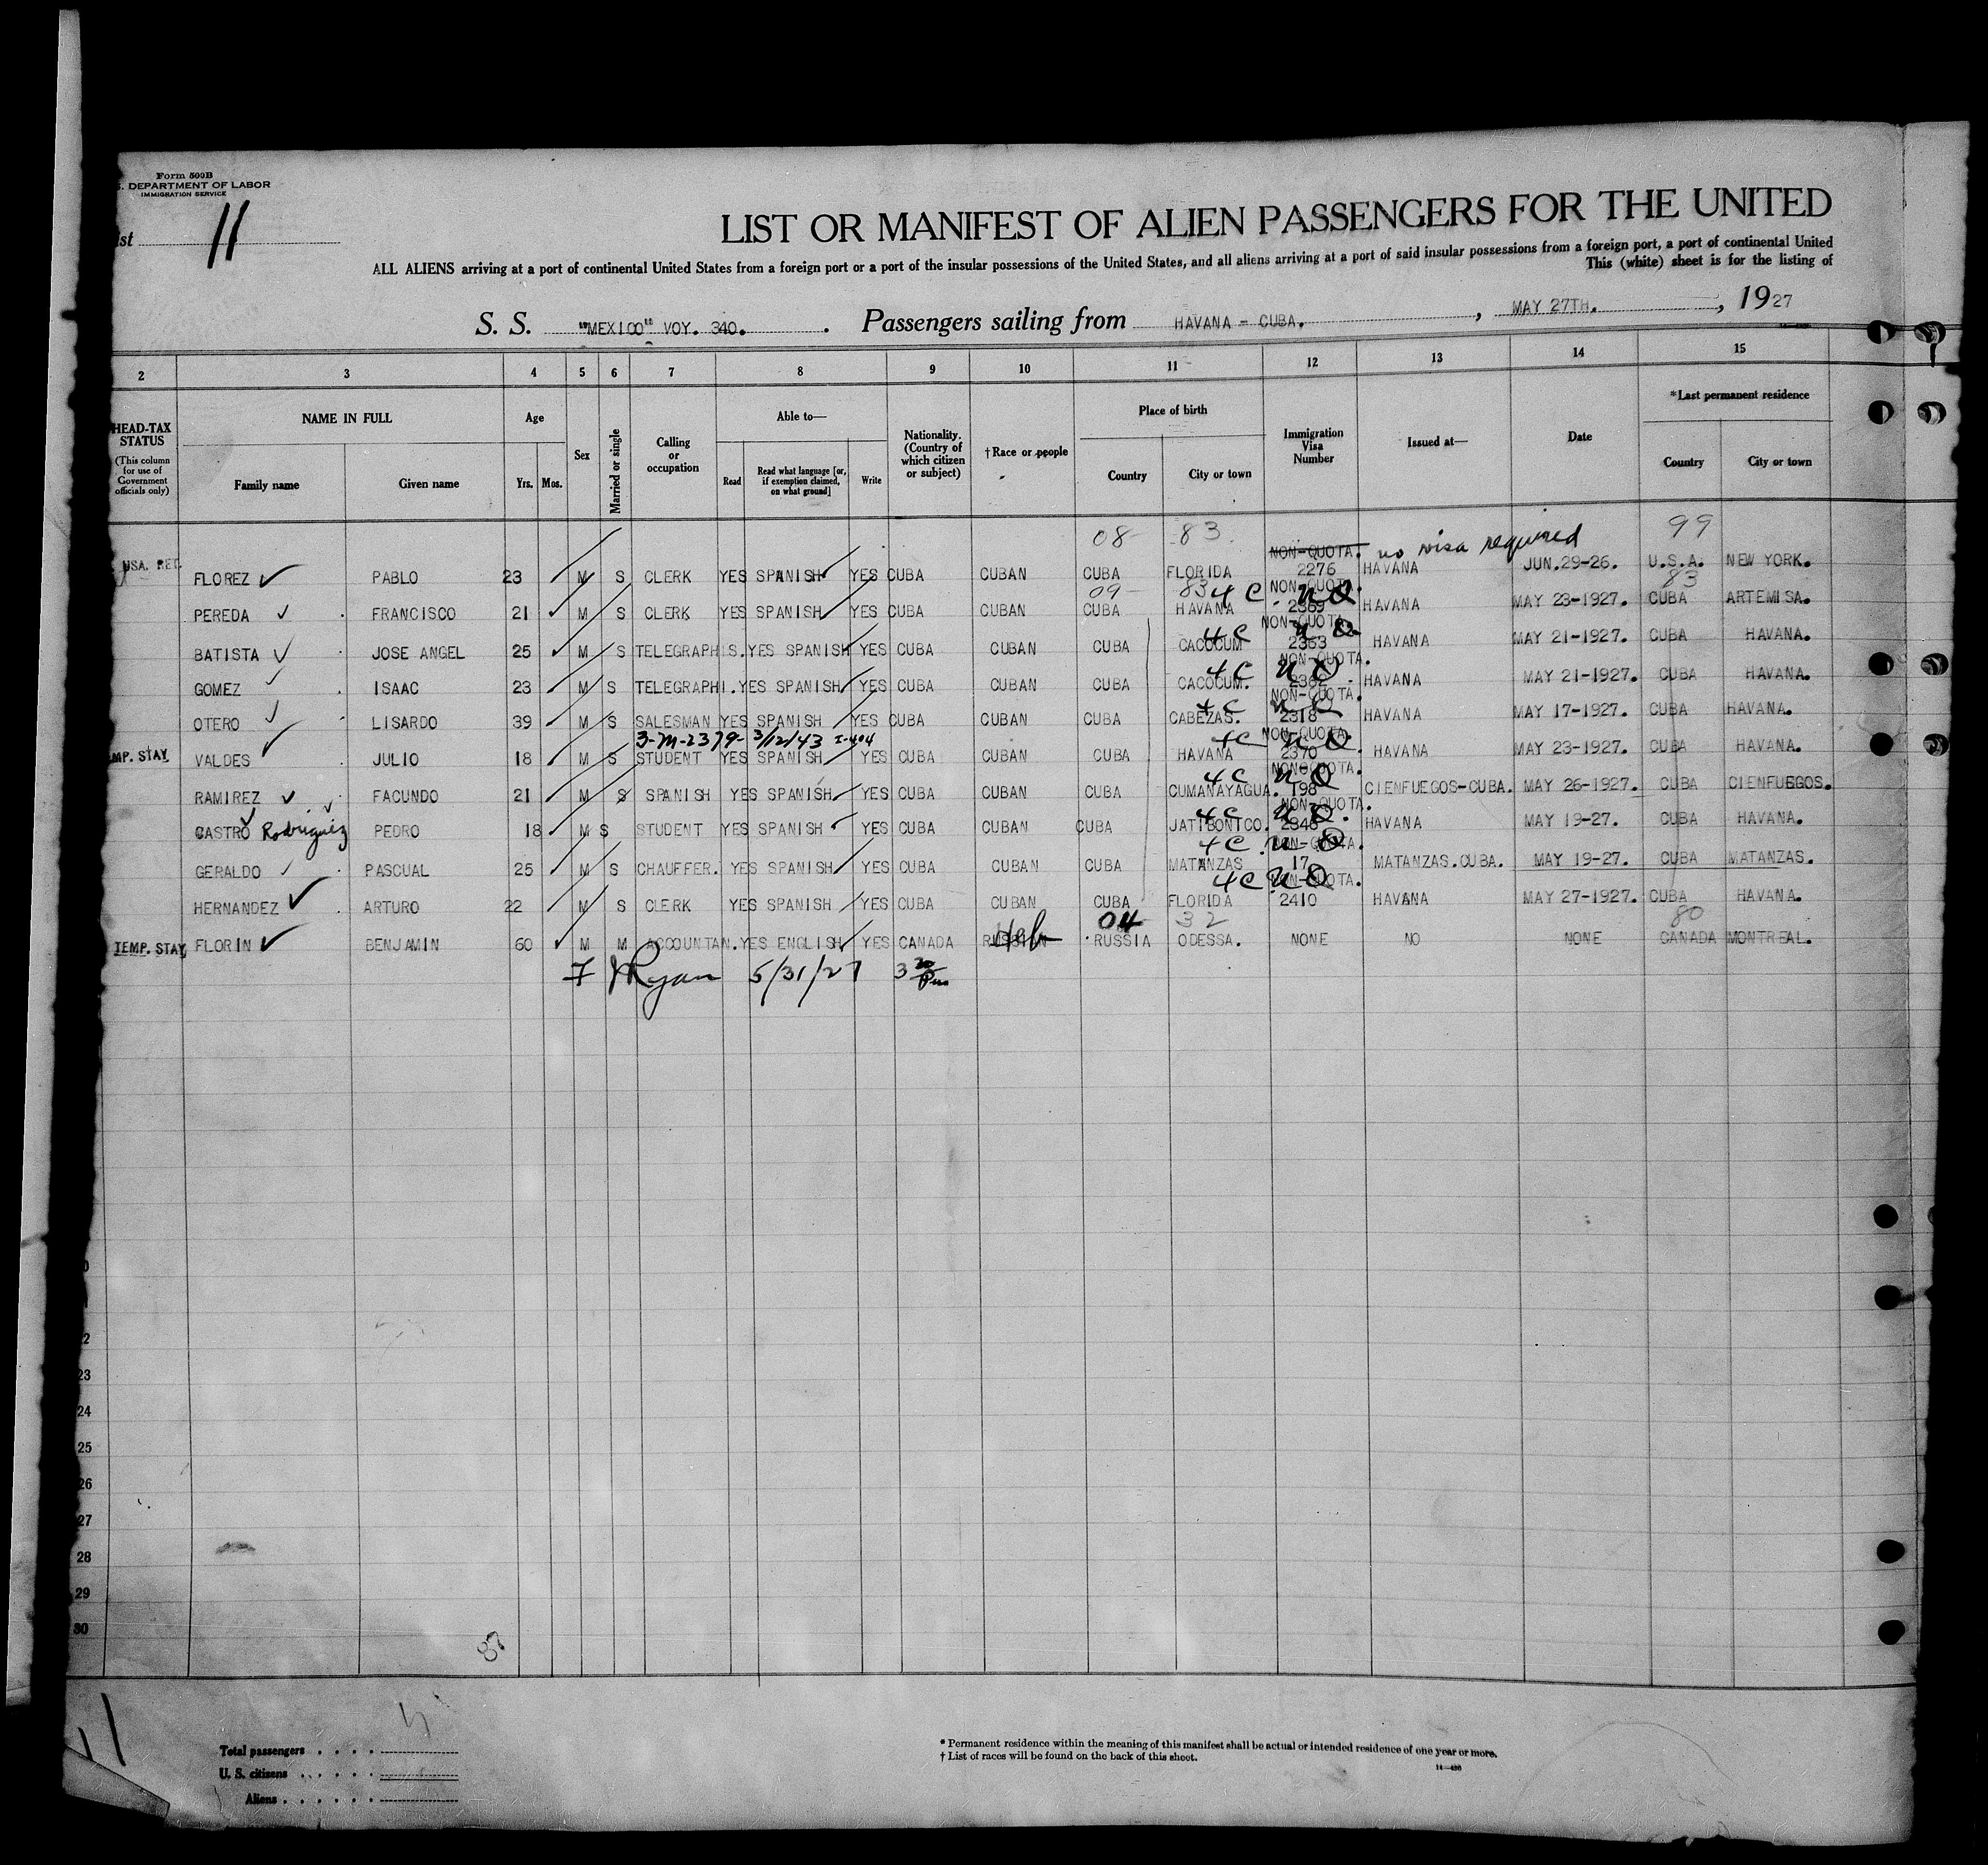 Form 500B
S. DEPARTMENT OF LABOR
IMMIGRATION SERVICE
ist 11
LIST OR MANIFEST OF ALIEN PASSENGERS FOR THE UNITED
ALL ALIENS arriving at a port of continental United States from a foreign port or a port of the insular possessions of the United States, and all aliens arriving at a port of said insular possessions from a foreign port, a port of continental United
This (white) sheet is for the listing of
S. S. "MEXICO" VOY. 340. Passengers sailing from HAVANA - CUBA. , MAY 27TH. , 1927
2 3 4 5 6 7 8 9 10 11 12 13 14 15
HEAD-TAX STATUS (This column for use of Government officials only) NAME IN FULL Family name Given name Age Yrs. Mos. Sex Married or single Calling or occupation Able to— Read Read what language [or, if exemption claimed, on what ground] Write Nationality. (Country of which citizen or subject) †Race or people Place of birth Country City or town Immigration Visa Number Issued at— Date *Last permanent residence Country City or town
08 83 NON-QUOTA. no visa required 99
USA. RET. FLOREZ PABLO 23 M S CLERK YES SPANISH YES CUBA CUBAN CUBA FLORIDA 2276 HAVANA JUN.29-26. U.S.A. NEW YORK.
09 83 4C NON-QUOTA. NQ 83
PEREDA FRANCISCO 21 M S CLERK YES SPANISH YES CUBA CUBAN CUBA HAVANA 2369 HAVANA MAY 23-1927. CUBA ARTEMISA.
4C NON-QUOTA. NQ
BATISTA JOSE ANGEL 25 M S TELEGRAPHIS. YES SPANISH YES CUBA CUBAN CUBA CACOCUM 2363 HAVANA MAY 21-1927. CUBA HAVANA.
4C NON-QUOTA. NQ
GOMEZ ISAAC 23 M S TELEGRAPHI. YES SPANISH YES CUBA CUBAN CUBA CACOCUM. 2362 HAVANA MAY 21-1927. CUBA HAVANA.
4C NON-QUOTA. NQ
OTERO LISARDO 39 M S SALESMAN YES SPANISH YES CUBA CUBAN CUBA CABEZAS. 2318 HAVANA MAY 17-1927. CUBA HAVANA.
3-M-2379- 3/12/43 I-404 4C NON-QUOTA. NQ
MP. STAY VALDES JULIO 18 M S STUDENT YES SPANISH YES CUBA CUBAN CUBA HAVANA 2370 HAVANA MAY 23-1927. CUBA HAVANA.
4C NON-QUOTA. NQ
RAMIREZ FACUNDO 21 M S SPANISH YES SPANISH YES CUBA CUBAN CUBA CUMANAYAGUA. 198 CIENFUEGOS-CUBA. MAY 26-1927. CUBA CIENFUEGOS.
4C NON-QUOTA. NQ
CASTRO Rodriguez PEDRO 18 M S STUDENT YES SPANISH YES CUBA CUBAN CUBA JATIBONICO. 2346 HAVANA MAY 19-27. CUBA HAVANA.
4C NON-QUOTA. NQ
GERALDO PASCUAL 25 M S CHAUFFER. YES SPANISH YES CUBA CUBAN CUBA MATANZAS 17 MATANZAS.CUBA. MAY 19-27. CUBA MATANZAS.
4C NON-QUOTA. NQ
HERNANDEZ ARTURO 22 M S CLERK YES SPANISH YES CUBA CUBAN CUBA FLORIDA 2410 HAVANA MAY 27-1927. CUBA HAVANA.
04 32 80
TEMP. STAY FLORIN BENJAMIN 60 M M ACCOUNTAN. YES ENGLISH YES CANADA RUSSIAN Heb RUSSIA ODESSA. NONE NO NONE CANADA MONTREAL.
Ryan 5/31/27 3 30 Pm
23
24
25
26
27
28
29
30
87
11
Total passengers
U. S. citizens
Aliens
* Permanent residence within the meaning of this manifest shall be actual or intended residence of one year or more.
† List of races will be found on the back of this sheet.